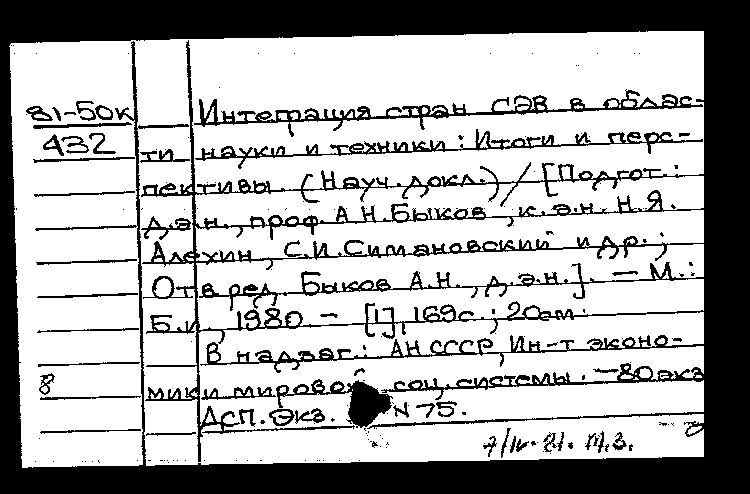 81-50к Интеграция стран СЭВ в облас-
432 ти науки и техники: Итоги и перс-
пективы. (Науч. докл.) / [Подгот.:
д.э.н., проф. А.Н. Быков, к.э.н. Н.Я.
Алехин, С.И. Симановский и др.;
Отв. ред. Быков А.Н., д.э.н.]. - М.:
Б.и., 1980. - [1], 169с.; 20см.
В надзаг.: АН СССР, Ин-т эконо-
8 мики мировой соц. системы. - 80 экз
Дсп. Экз. N 75.
7/IV-81.